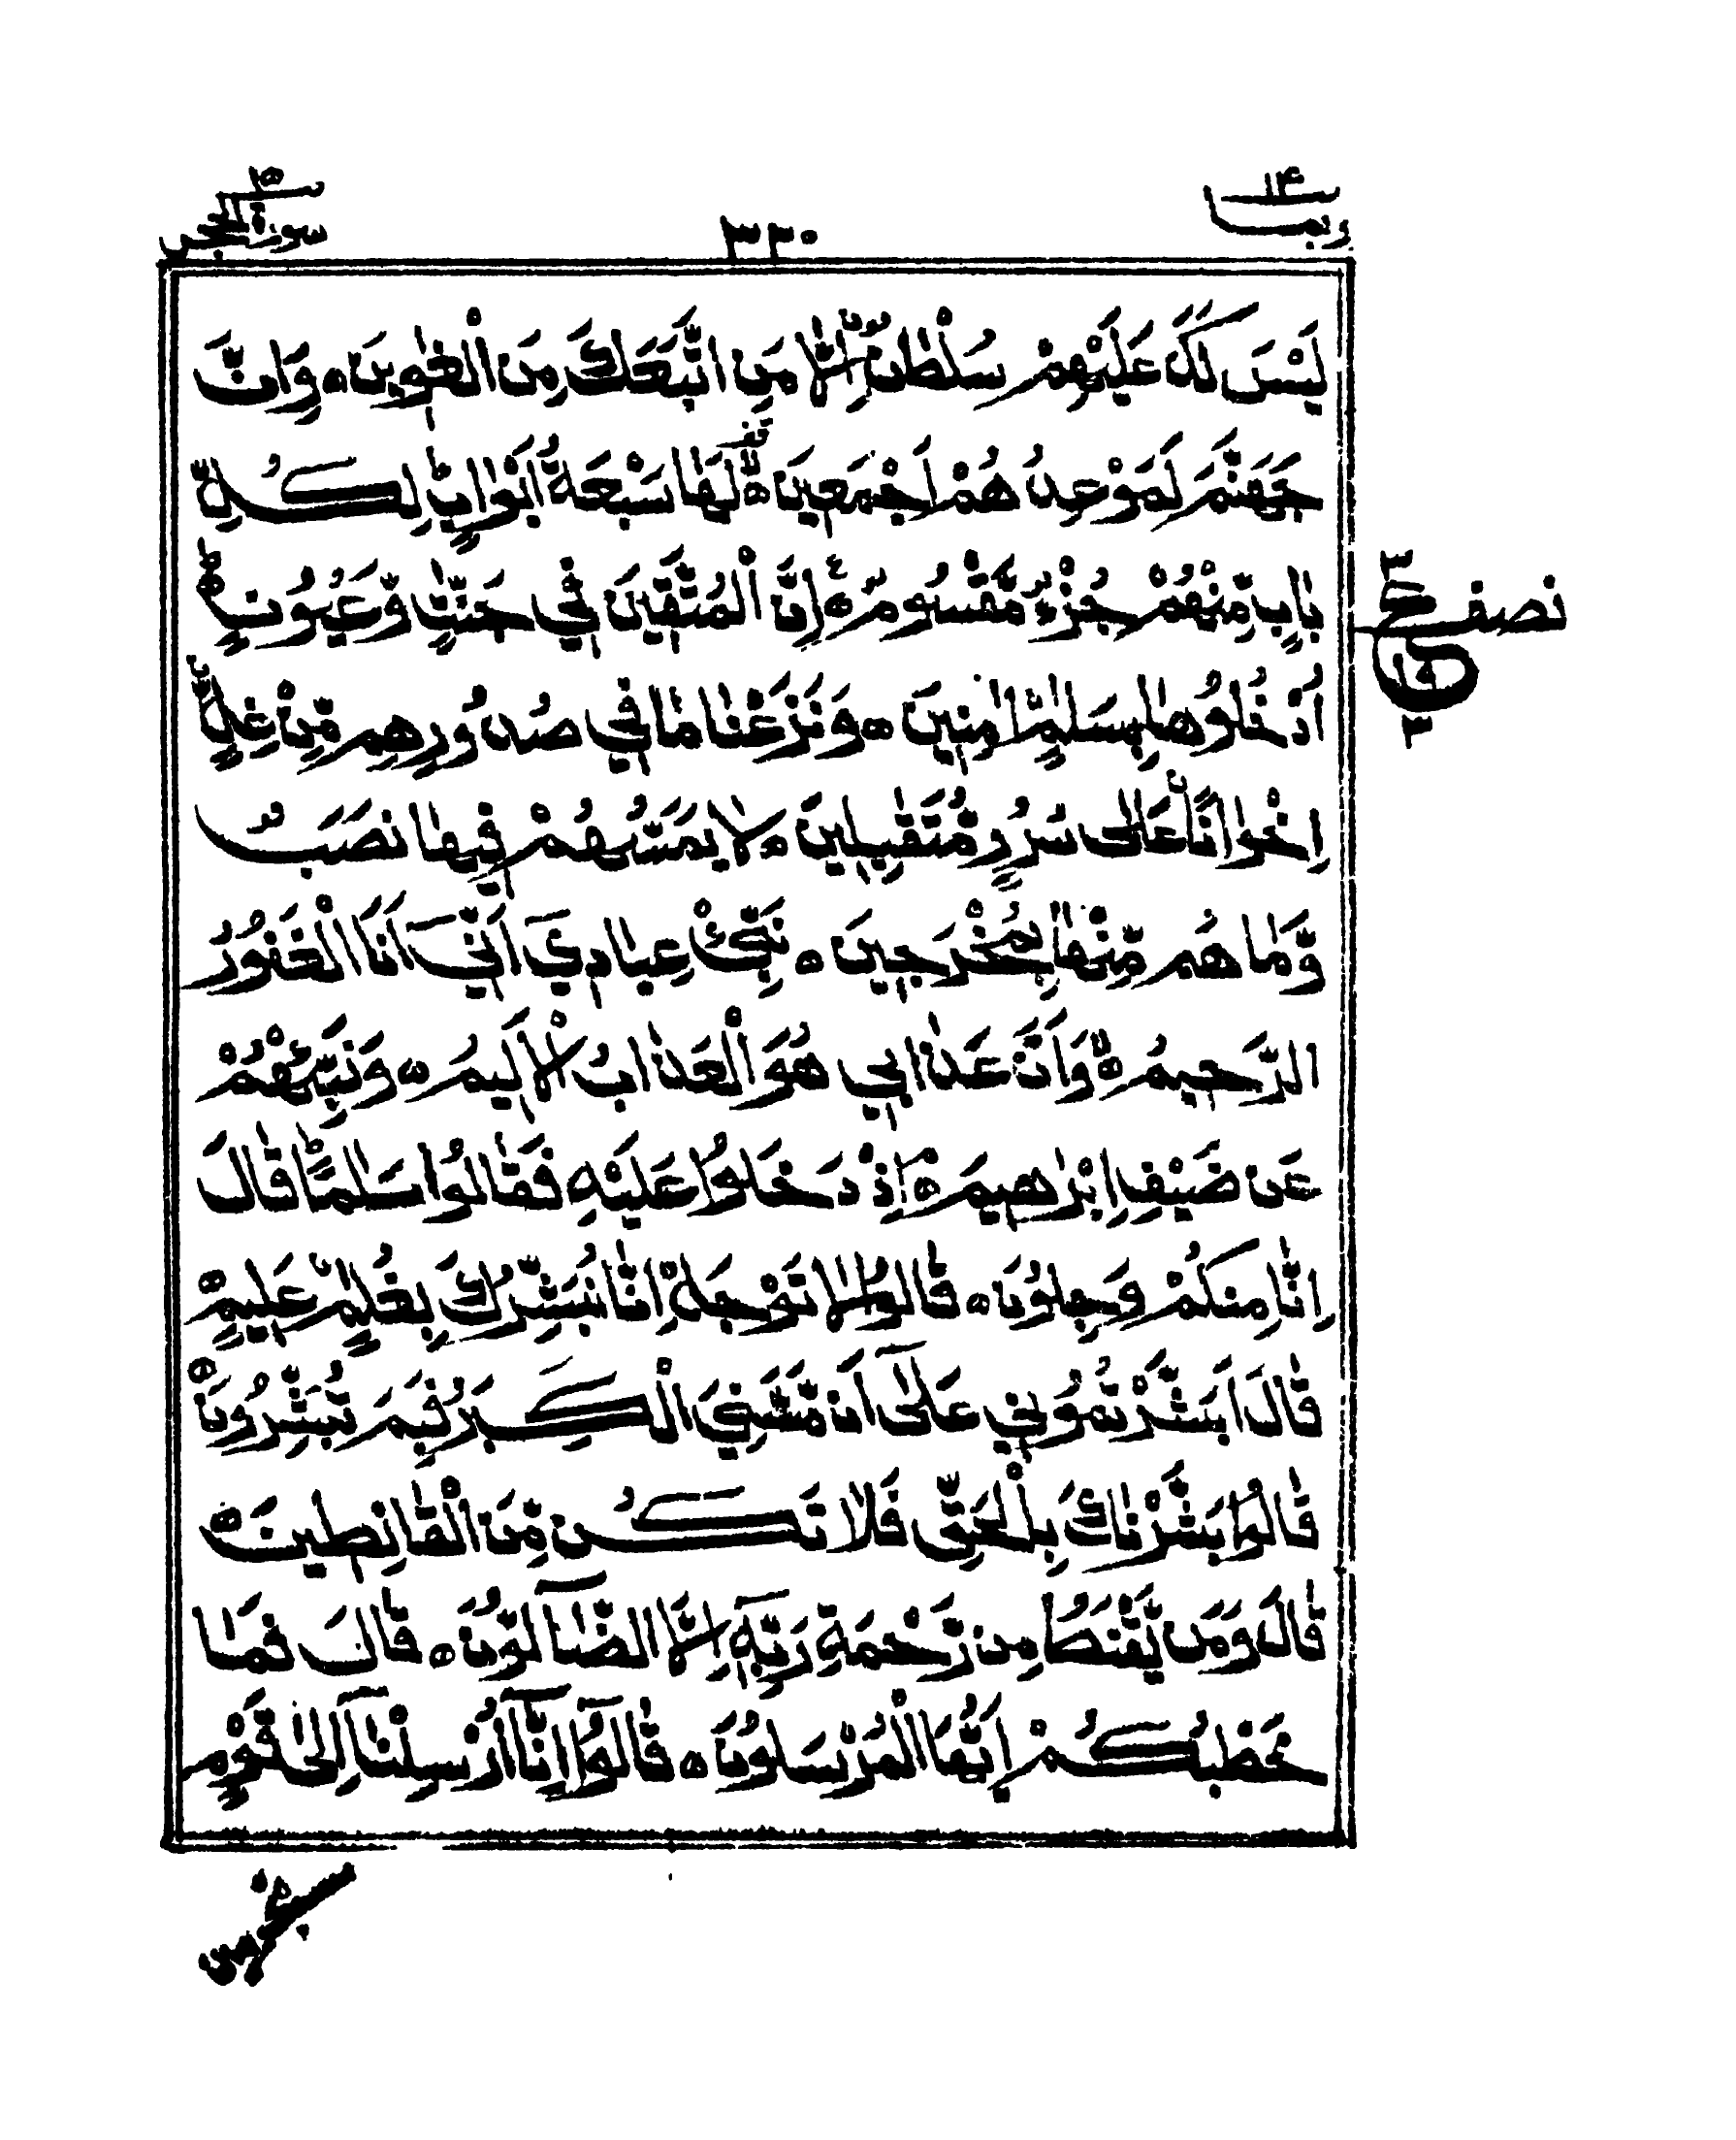 ربما ١٤
٣٣٠
سورة الحجر ١٥
لَيْسَ لَكَ عَلَيْهِمْ سُلْطٰنٌ اِلَّا مَنِ اتَّبَعَكَ مِنَ الْغٰوِينَ ه وَاِنَّ
جَهَنَّمَ لَمَوْعِدُهُمْ اَجْمَعِينَ ه لَهَا سَبْعَةُ اَبْوَابٍ لِكُلِّ
بَابٍ مِّنْهُمْ جُزْءٌ مَّقْسُومٌ ه اِنَّ الْمُتَّقِينَ فِي جَنّٰتٍ وَّعُيُونٍ ه
اُدْخُلُوهَا بِسَلٰمٍ اٰمِنِينَ ه وَنَزَعْنَا مَا فِي صُدُورِهِم مِّنْ غِلٍّ
اِخْوَانًا عَلٰى سُرُرٍ مُّتَقٰبِلِينَ ه لَا يَمَسُّهُمْ فِيهَا نَصَبٌ
وَّمَا هُم مِّنْهَا بِمُخْرَجِينَ ه نَبِّئْ عِبَادِي اَنِّي اَنَا الْغَفُورُ
الرَّحِيمُ ه وَاَنَّ عَذَابِي هُوَ الْعَذَابُ الْاَلِيمُ ه وَنَبِّئْهُمْ
عَن ضَيْفِ اِبْرٰهِيمَ ه اِذْ دَخَلُوا عَلَيْهِ فَقَالُوا سَلٰمًا قَالَ
اِنَّا مِنكُمْ وَجِلُونَ ه قَالُوا لَا تَوْجَلْ اِنَّا نُبَشِّرُكَ بِغُلٰمٍ عَلِيمٍ
قَالَ اَبَشَّرْتُمُونِي عَلٰى اَن مَّسَّنِيَ الْكِبَرُ فَبِمَ تُبَشِّرُونَ ه
قَالُوا بَشَّرْنَاكَ بِالْحَقِّ فَلَا تَكُن مِّنَ الْقَانِطِينَ ه
قَالَ وَمَن يَّقْنَطُ مِن رَّحْمَةِ رَبِّهٖ اِلَّا الضَّآلُّونَ ه قَالَ فَمَا
خَطْبُكُمْ اَيُّهَا الْمُرْسَلُونَ ه قَالُوا اِنَّا اُرْسِلْنَا اِلٰى قَوْمٍ
نصف
٣
ع
١٩
٣